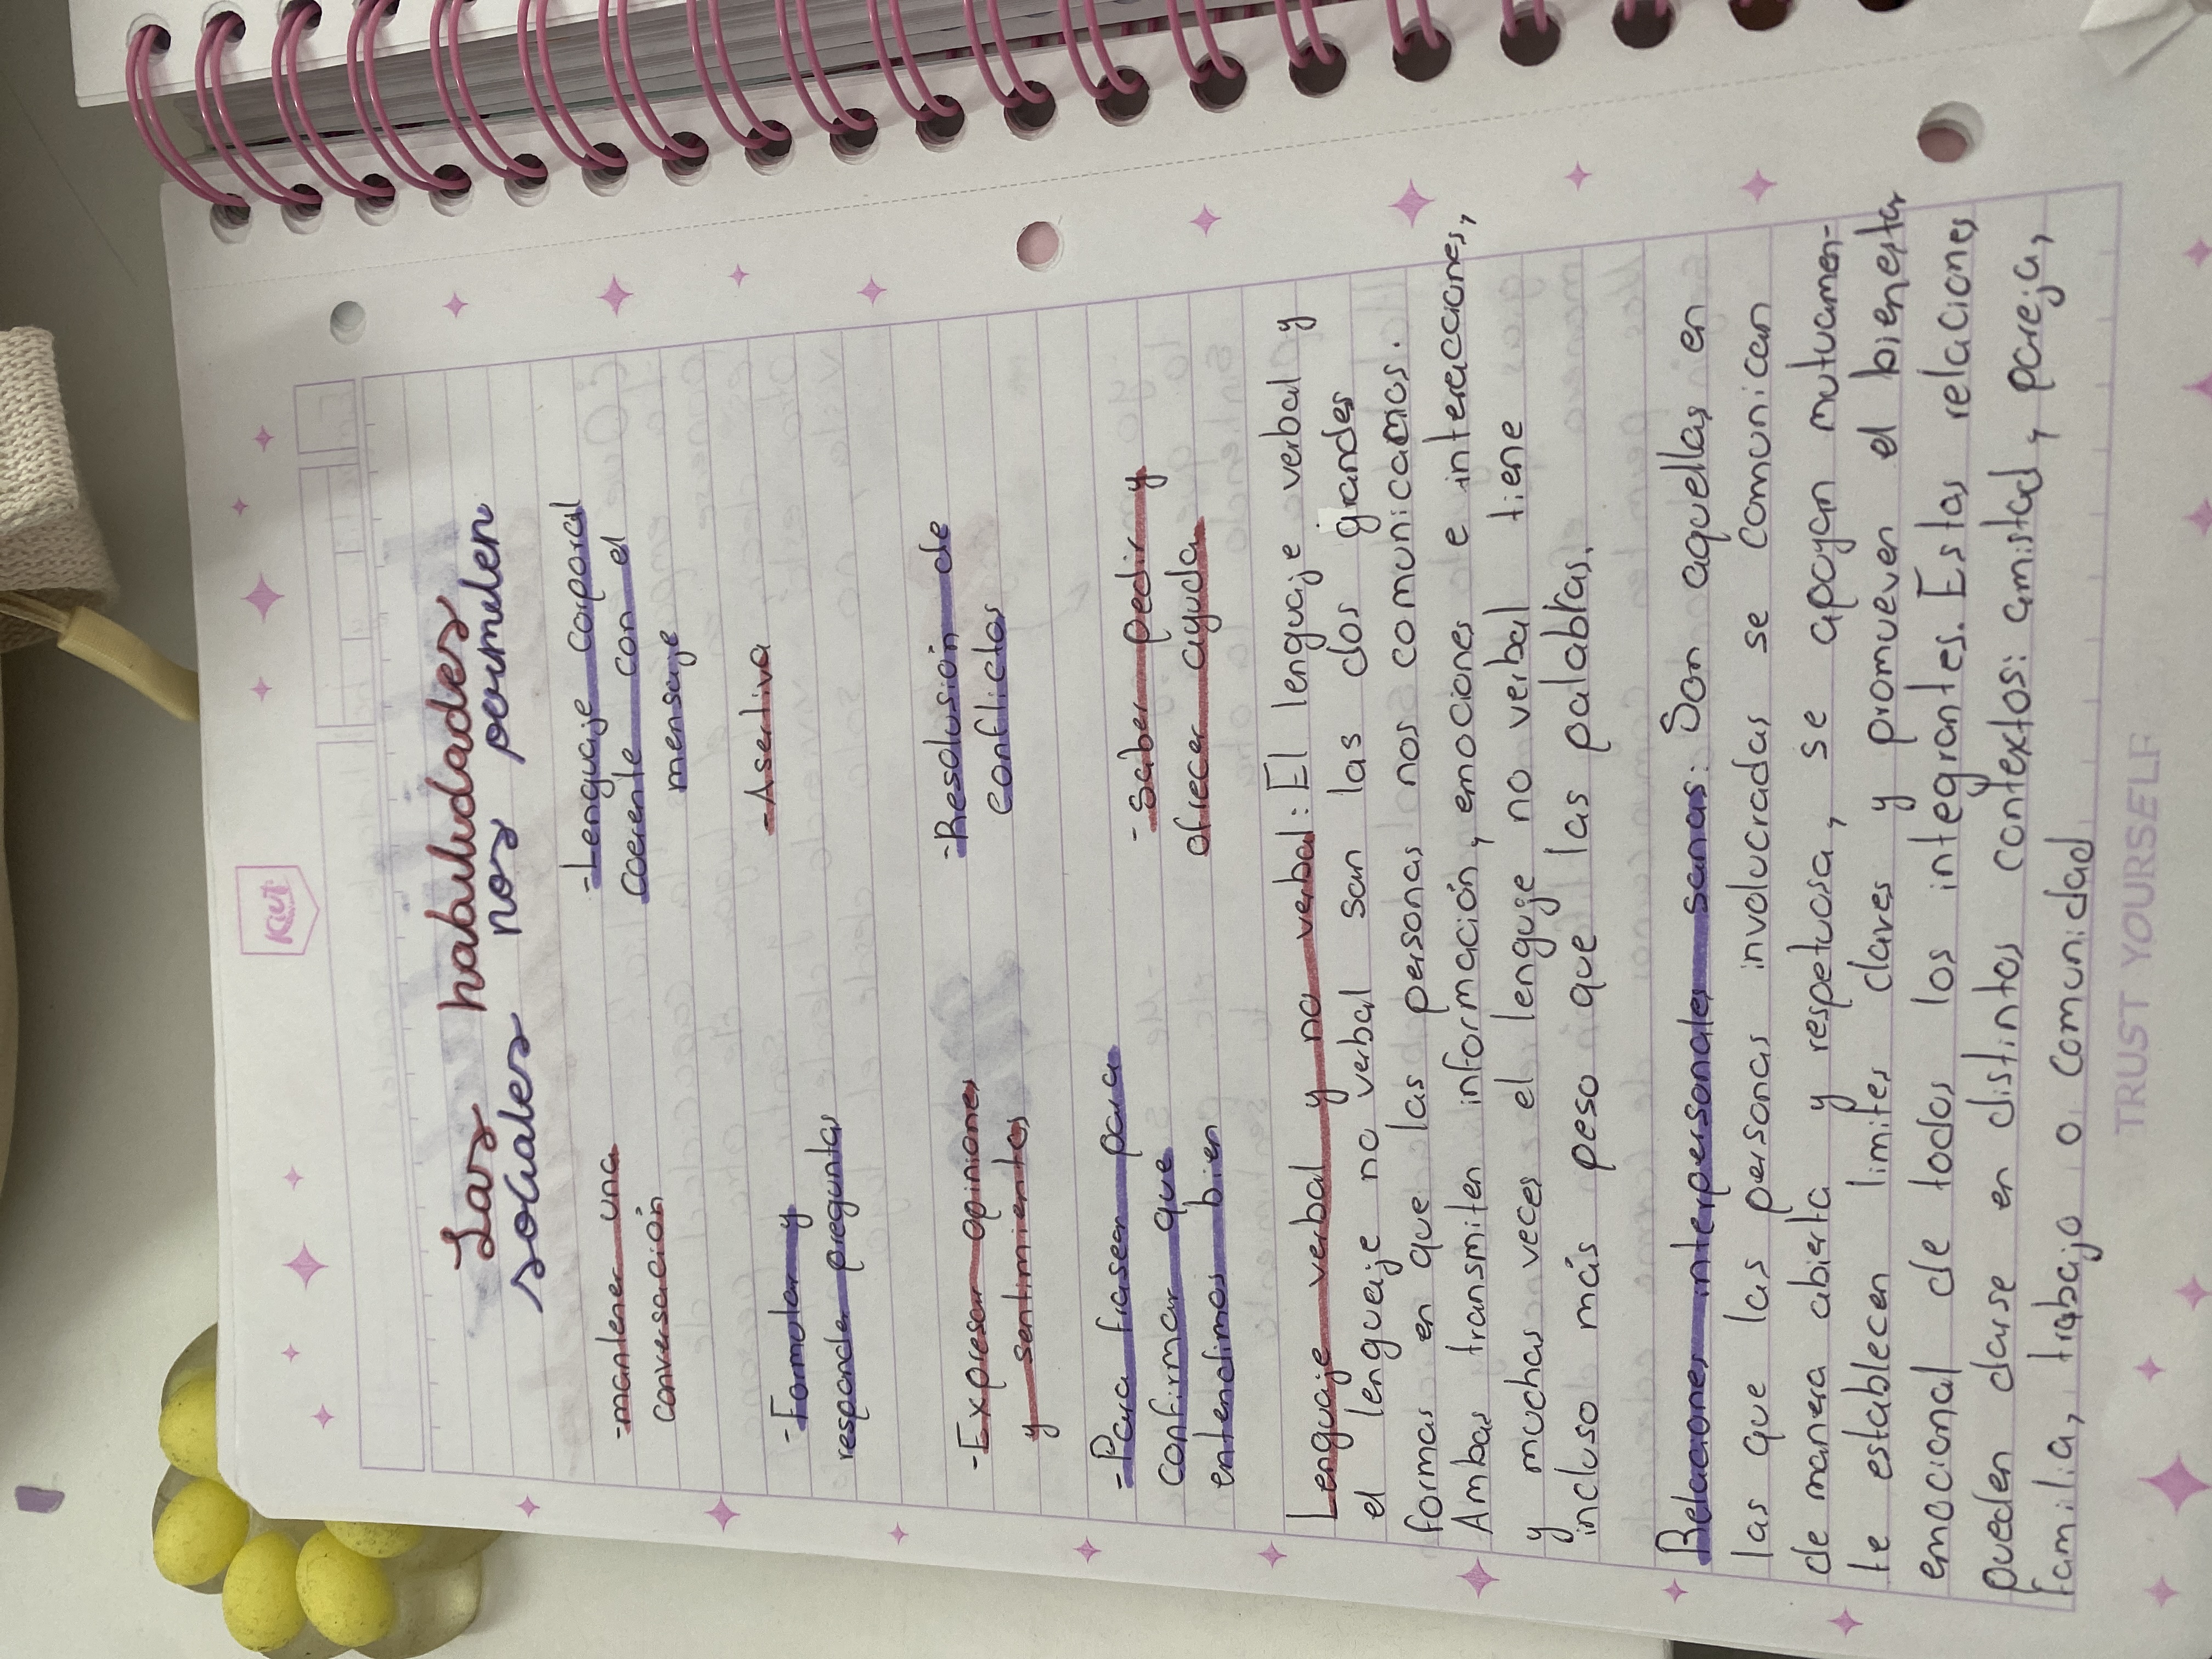 Kiut
Las habilidades
sociales nos permiten
-mantener una
conversación
-Lenguaje corporal
coerente con el
mensaje
-Formular y
responder preguntas
-Asertiva
-Expresar opiniones
y sentimientos
-Resolusión de
conflictos
-Para frasear para
confirmar que
entendimos bien
-Saber pedir y
ofrecer ayuda
Lenguaje verbal y no verbal: El lenguaje verbal y
el lengueaje no verbal son las dos grandes
formas en que las personas nos comunicamos.
Ambas transmiten información, emociones e interacciones,
y muchas veces el lenguje no verbal tiene
incluso más peso que las palabras.
Relaciones interpersonales sanas: Son aquellas en
las que las personas involucradas se comunican
de manera abierta y respetuosa, se apoyan mutuamen-
te establecen limites claves y promueven el bienestar
emocional de todos los integrantes. Estas relaciones
pueden darse en distintos contextos: amistad, pareja,
familia, trabajo o comunidad
TRUST YOURSELF